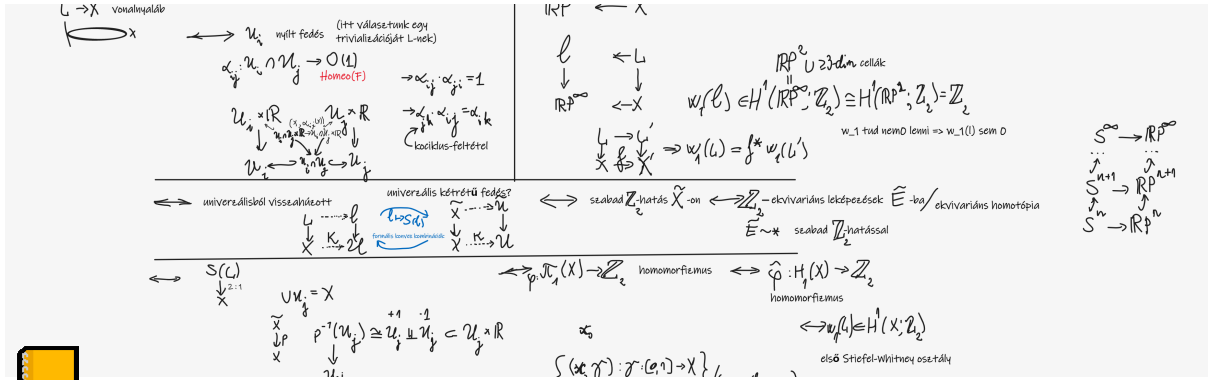 L → X vonalnyaláb
x
↔ U_i nyílt fedés
(itt választunk egy
trivializációját L-nek)
α_ij : U_i ∩ U_j → O(1)
Homeo(F)
→ α_ij · α_ji = 1
→ α_jk · α_ij = α_ik
kociklus-feltétel
U_i × ℝ U_j × ℝ
U_i ← U_i ∩ U_j → U_j
ℝP^∞ ← X
ℓ ← L
↓ ↓
ℝP^∞ ← X
ℝP² ∪ ≥3-dim cellák
w_1(ℓ) ∈ H¹(ℝP^∞; ℤ_2) ≅ H¹(ℝP²; ℤ_2) = ℤ_2
w_1 tud nem0 lenni => w_1(l) sem 0
L → L'
↓ ↓
X f→ X' ⇒ w_1(L) = f* w_1(L')
S^∞ → ℝP^∞
... ...
S^n+1 → ℝP^n+1
S^n → ℝP^n
↔ univerzálisból visszaházott
L ⇢ ℓ
↓ ↓
X K⇢ U
univerzális kétrétű fedés?
ℓ ↦ S(ℓ)
formális konvex kombinációk
X̃ ⇢ Ũ
↓ ↓
X K⇢ U
↔ szabad ℤ_2-hatás X̃-on ↔ ℤ_2-ekvivariáns leképezések Ẽ-ba / ekvivariáns homotópia
Ẽ ~ * szabad ℤ_2-hatással
↔ S(L)
↓ 2:1
X
∪U_j = X
X̃
↓ p
X
p⁻¹(U_j) ≅ U_j ⊔ U_j ⊂ U_j × ℝ
+1 -1
↓
U_j
↔ φ: π_1(X) → ℤ_2 homomorfizmus ↔ φ̂ : H_1(X) → ℤ_2
homomorfizmus
↔ w_1(L) ∈ H¹(X; ℤ_2)
első Stiefel-Whitney osztály
x_0
{(x, γ) : γ : [0,1] → X}